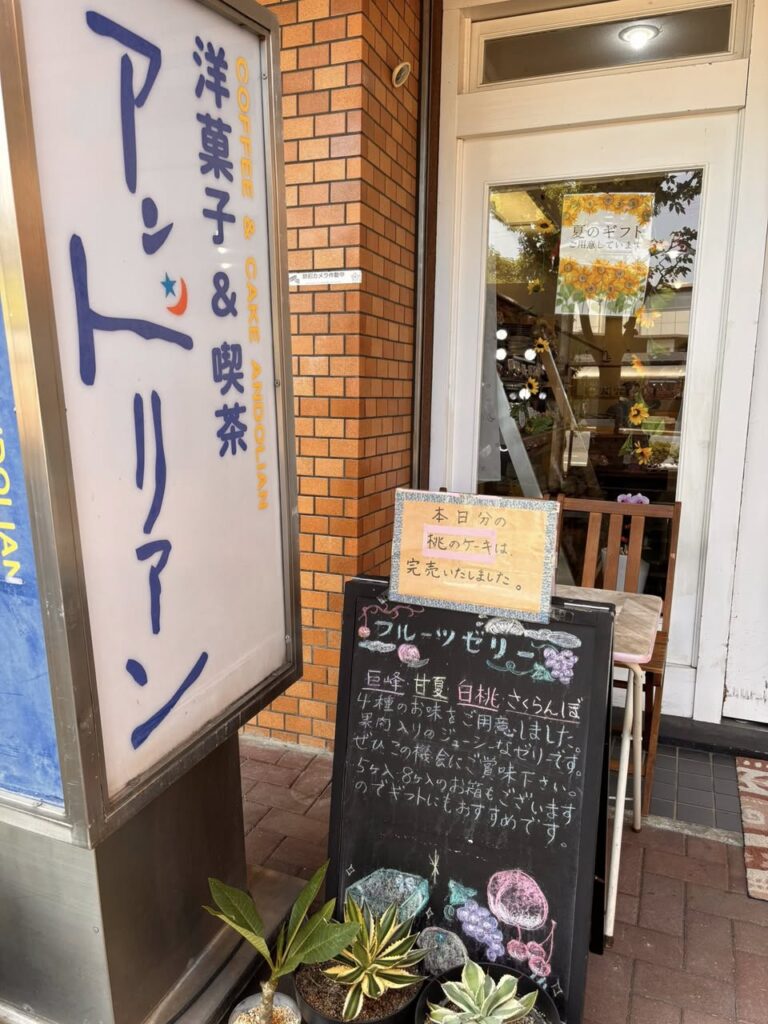 アンドリアン
洋菓子&喫茶
COFFEE & CAKE ANDOLIAN
防犯カメラ作動中
夏のギフト
ご用意しています
本日分の
桃のケーキは、
完売いたしました。
フルーツゼリー
巨峰・甘夏・白桃・さくらんぼ
4種のお味をご用意しました。
果肉入りのジューシーなゼリーです。
ぜひこの機会にご賞味下さい。
5ヶ入・8ヶ入のお箱もございます
のでギフトにもおすすめです。